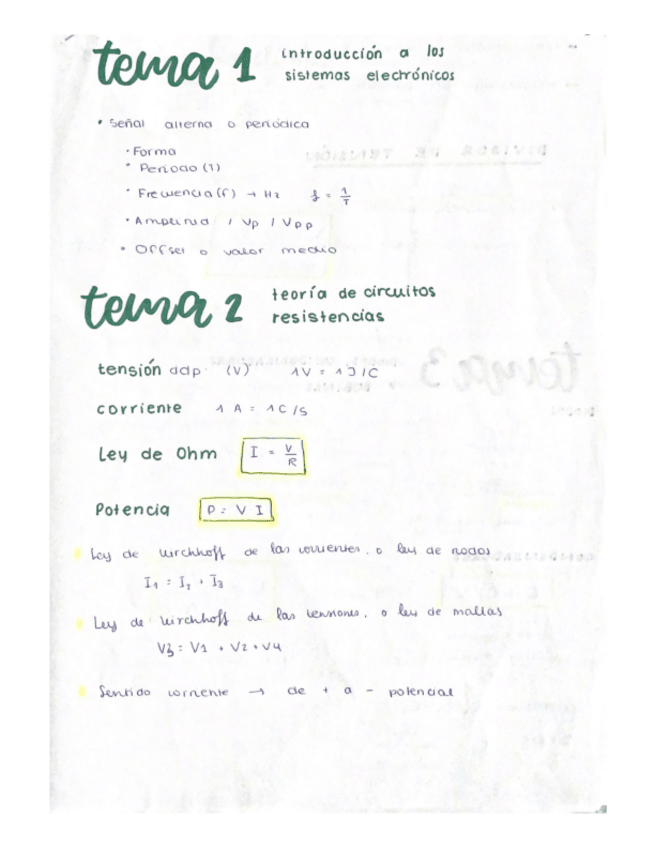 tema 1 introducción a los
sistemas electrónicos
• Señal alterna o periódica
• Forma
• Periodo (T)
• Frecuencia (f) → Hz f = 1/T
• Amplitud / Vp / Vpp
• Offset o valor medio
tema 2 teoría de circuitos
resistencias
tensión ddp. (V) 1V = 1J/C
corriente 1 A = 1C/s
Ley de Ohm I = V/R
Potencia P = V I
Ley de Kirchhoff de las corrientes, o ley de nodos
I1 = I2 + I3
Ley de Kirchhoff de las tensiones, o ley de mallas
V3 = V1 + V2 + V4
Sentido corriente → de + a - potencial